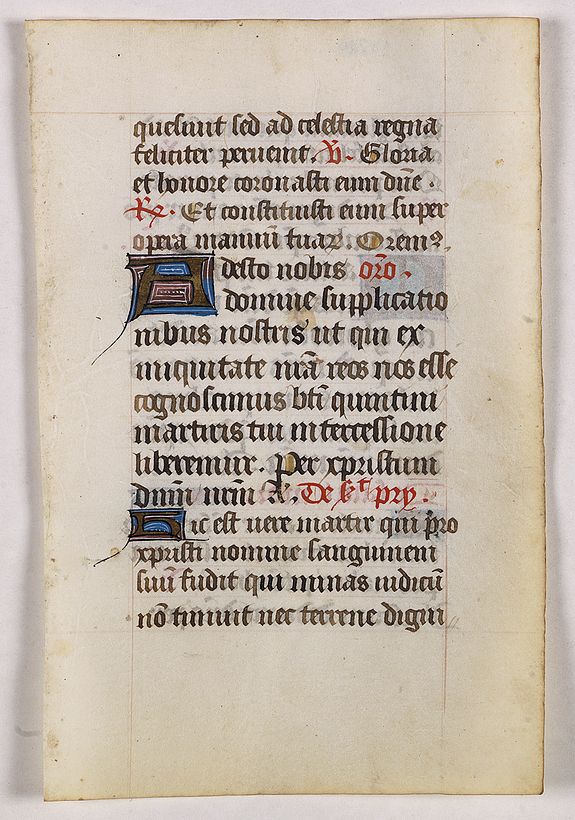 quesiuit sed ad celestia regna
feliciter peruenit. V̄. Gloria
et honore coronasti eum dn̄e.
R̄. Et constituisti eum super
opera manuū tuar̄. Oremꝰ.
Adesto nobis or̄o.
domine supplicatio
nibus nostris ut qui ex
iniquitate nr̄a reos nos esse
cognoscimus bt̄i quintini
martiris tui intercessione
liberemur. Per xpristum
dnm̄ nrm̄ &. De s̄t pry.
Hic est uere martir qui pro
xpristi nomine sanguinem
suū fudit qui minas iudicū
nō timuit nec terrene digni